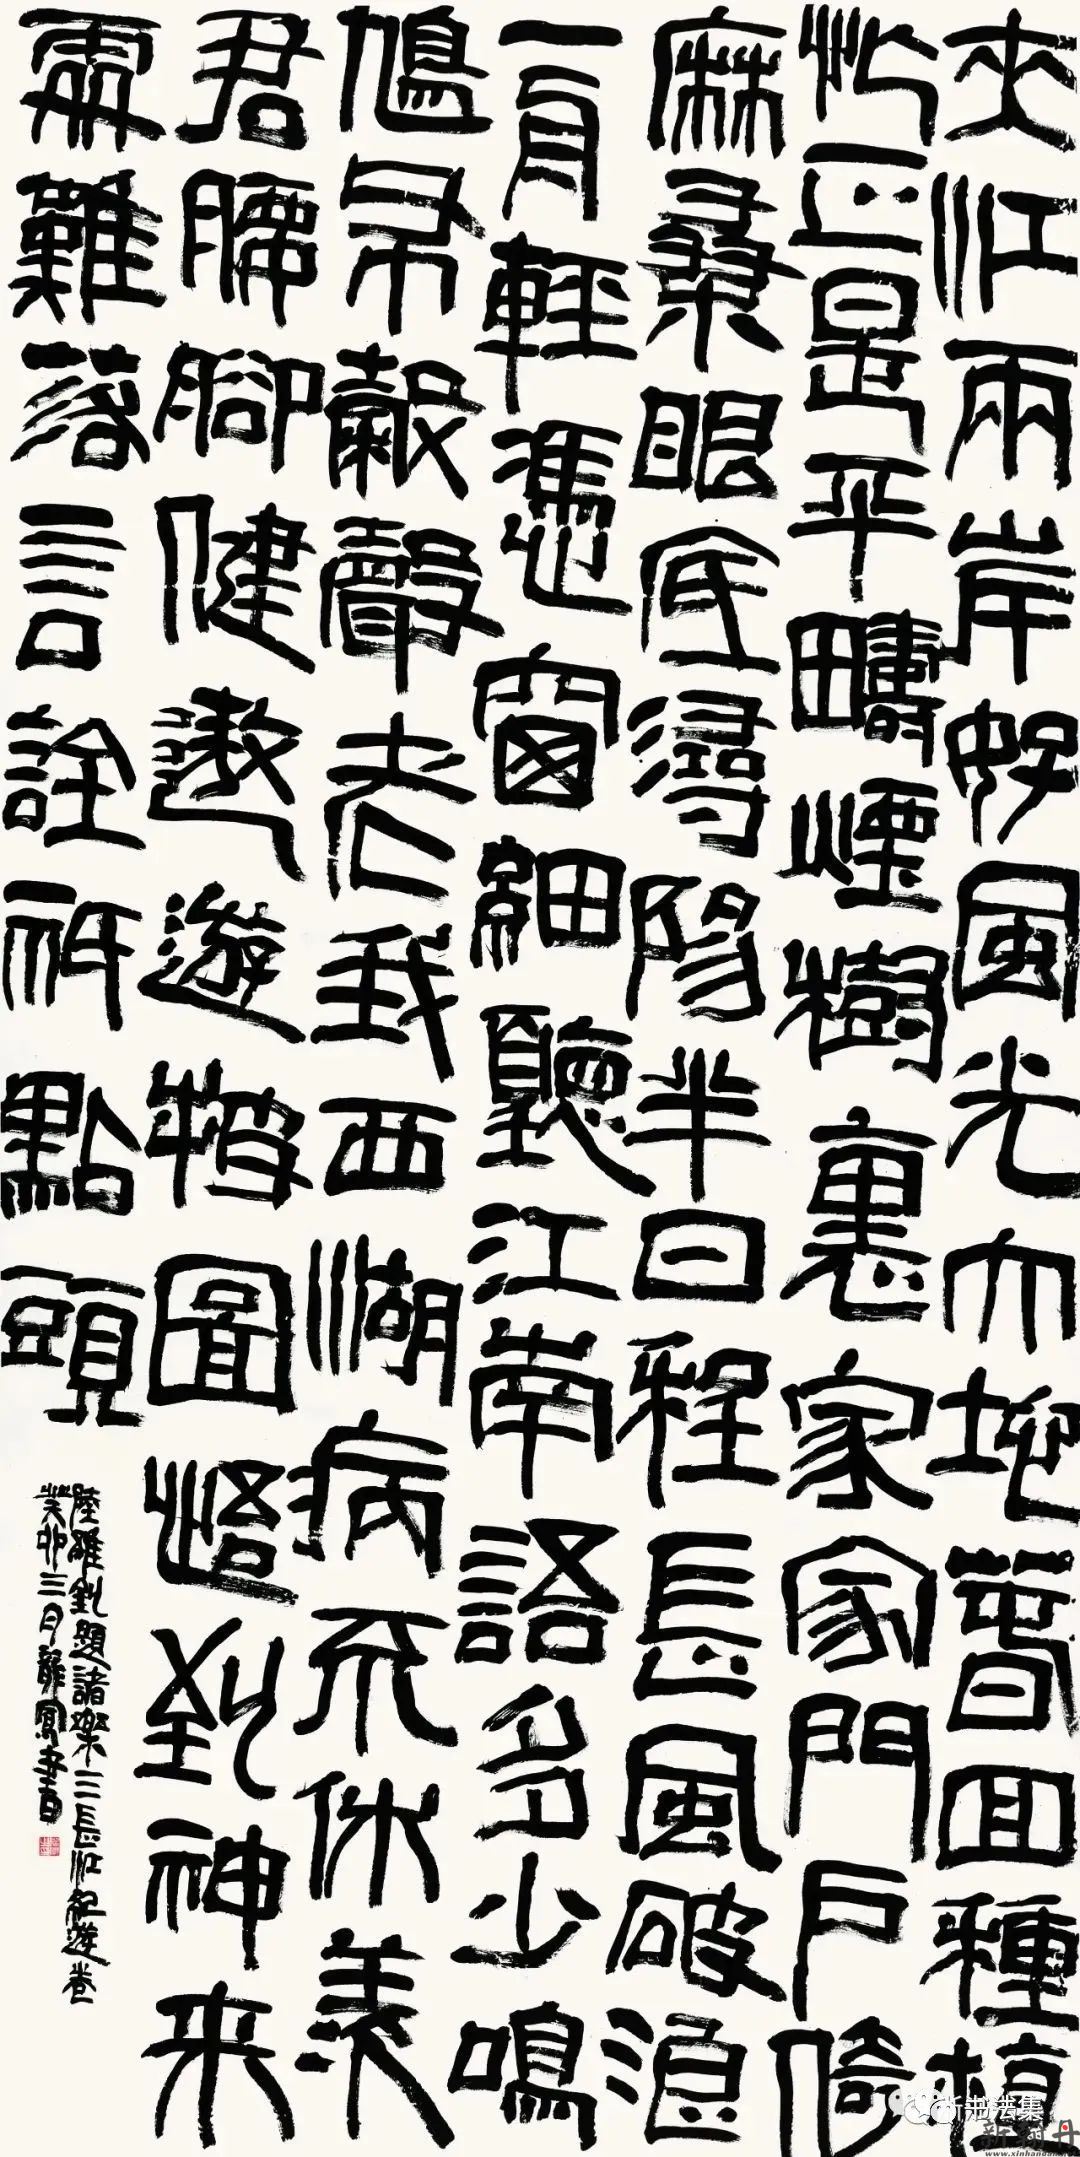 夾江兩岸好風光大地春回種植
忙正是平疇煙樹裏家家門戶倚
麻桑眼底潯陽半日程長風破浪
一舟輕憑窗細聽江南語多少鳴
鳩布穀聲老我西湖病不休羨
君腰腳健遨遊披圖悟到神来
處難落言詮祇點頭
陸維釗題諸樂三長江紀遊卷
癸卯三月書
书法集